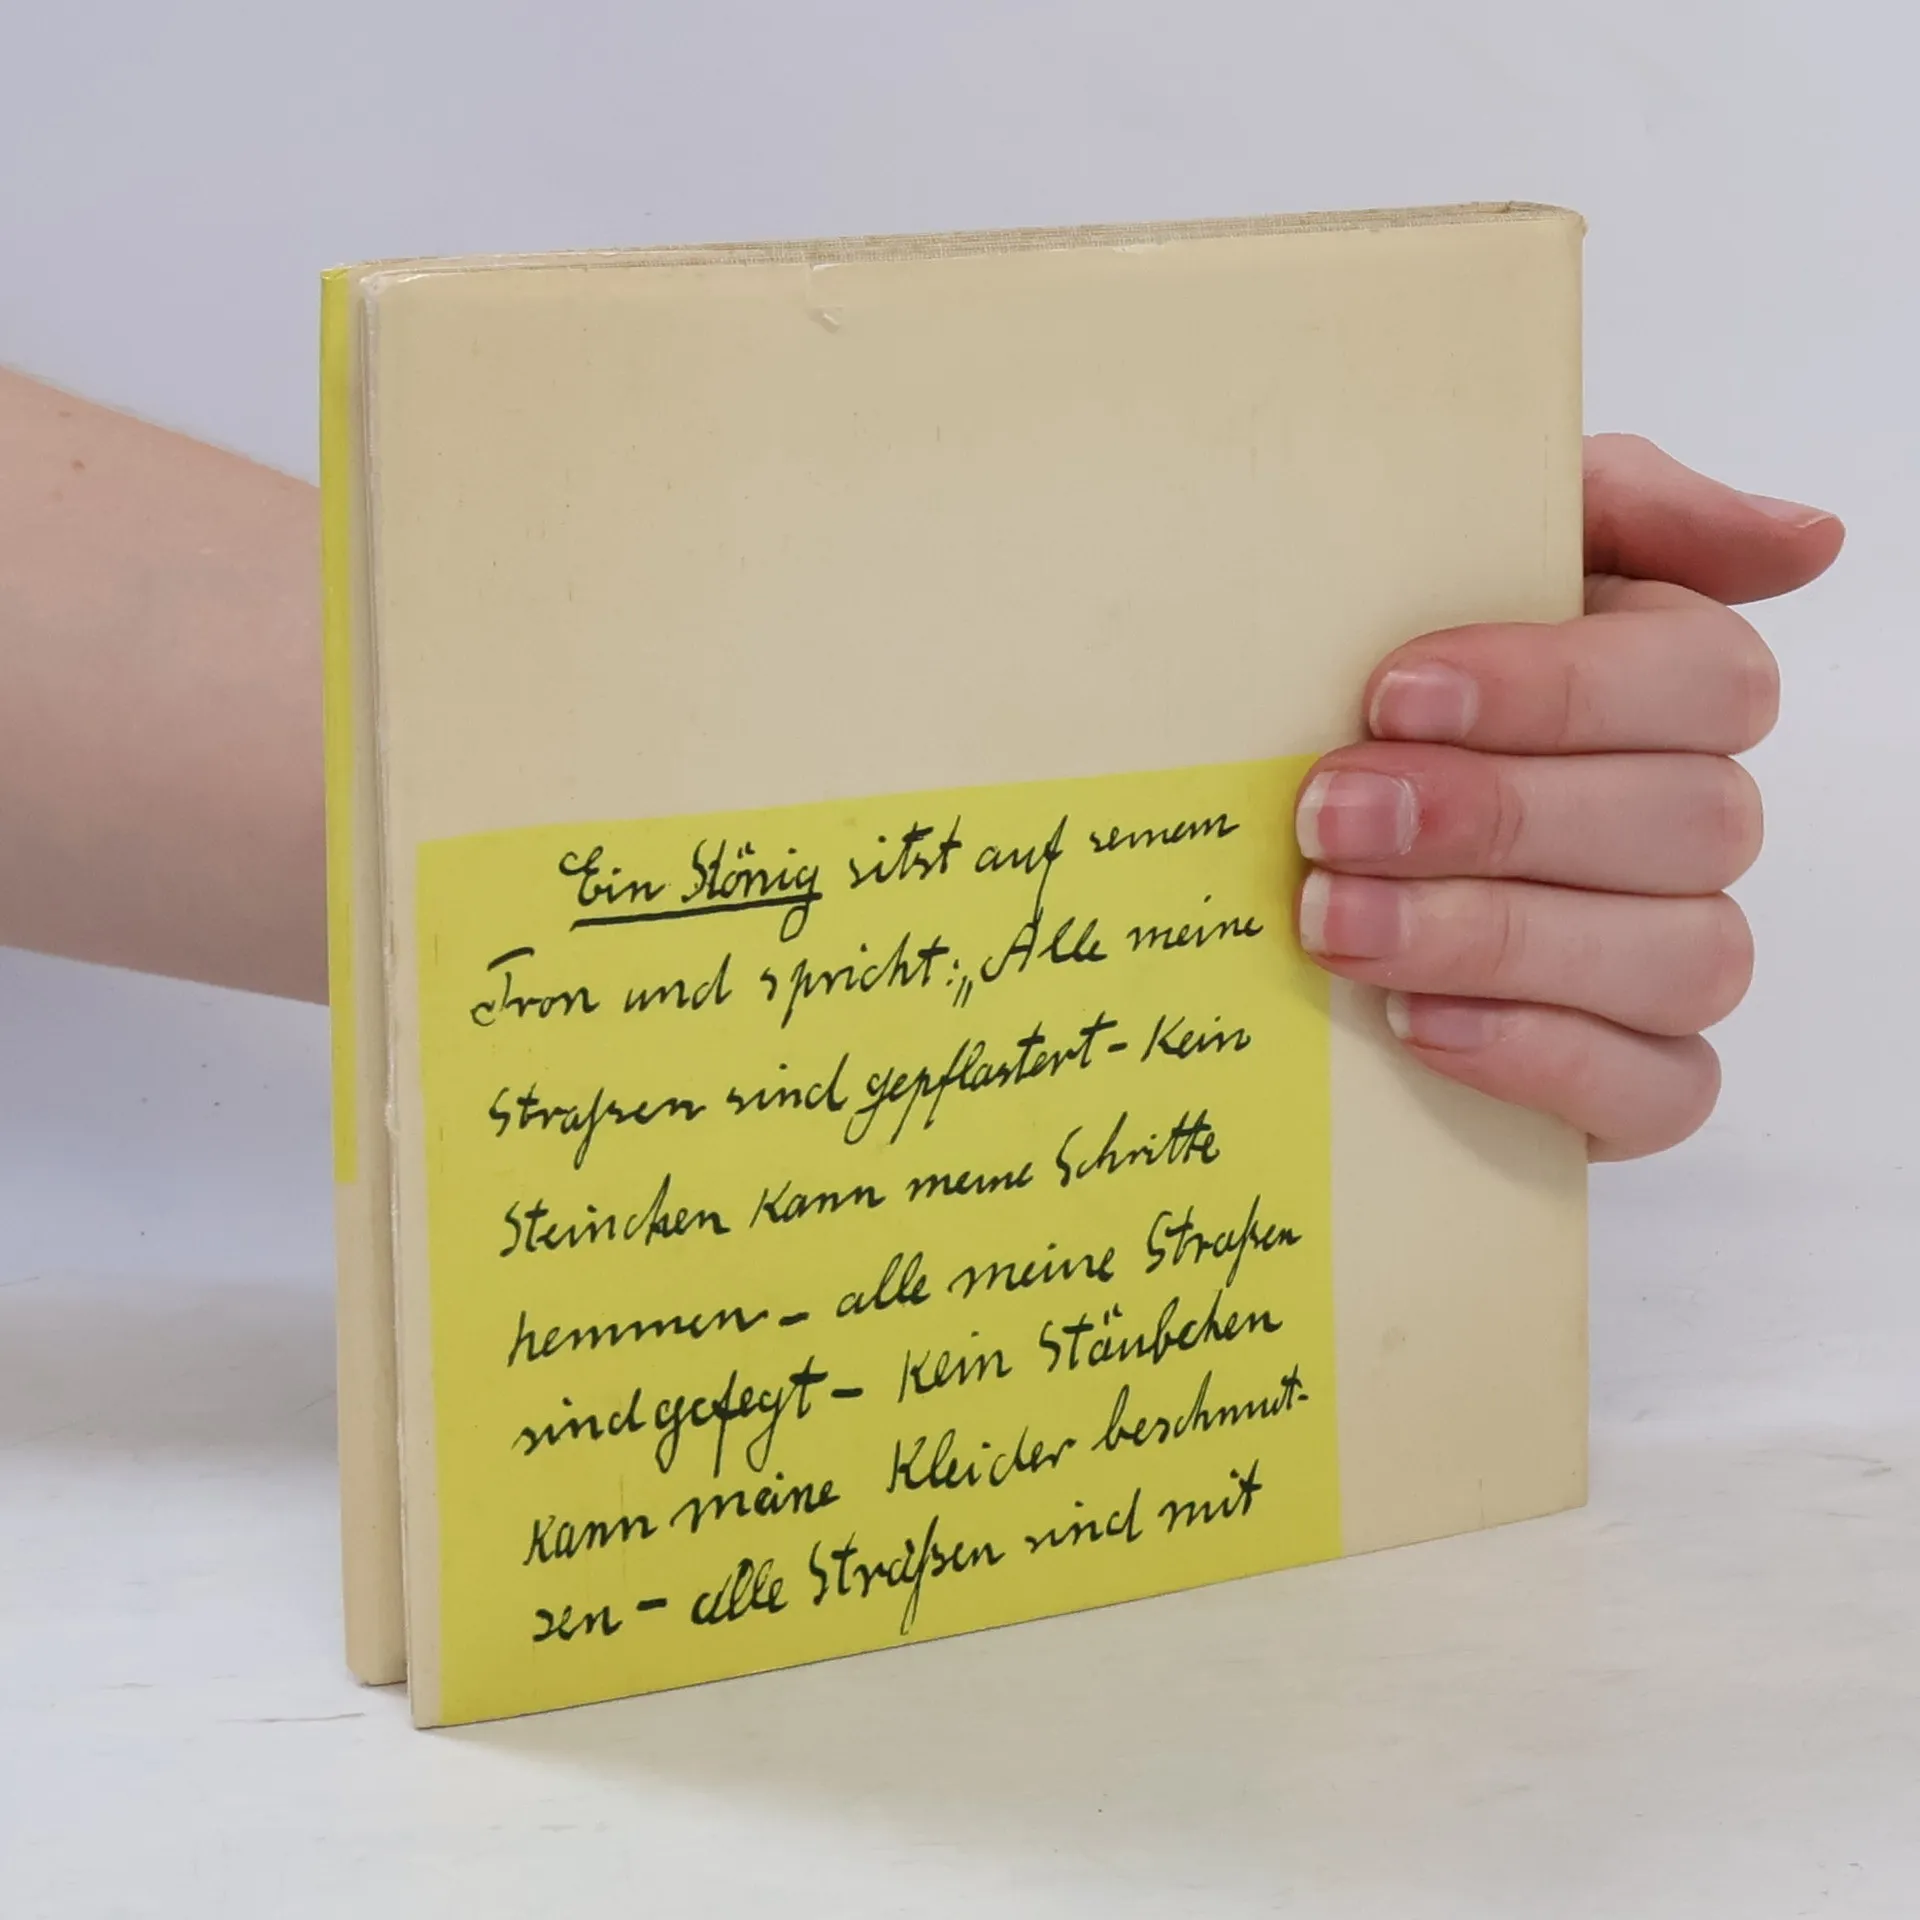 Ein König sitzt auf seinem
Tron und spricht: „Alle meine
Straßen sind gepflastert – kein
Steinchen kann meine Schritte
hemmen – alle meine Straßen
sind gefegt – kein Stäubchen
kann meine Kleider beschmut-
zen – alle Straßen sind mit